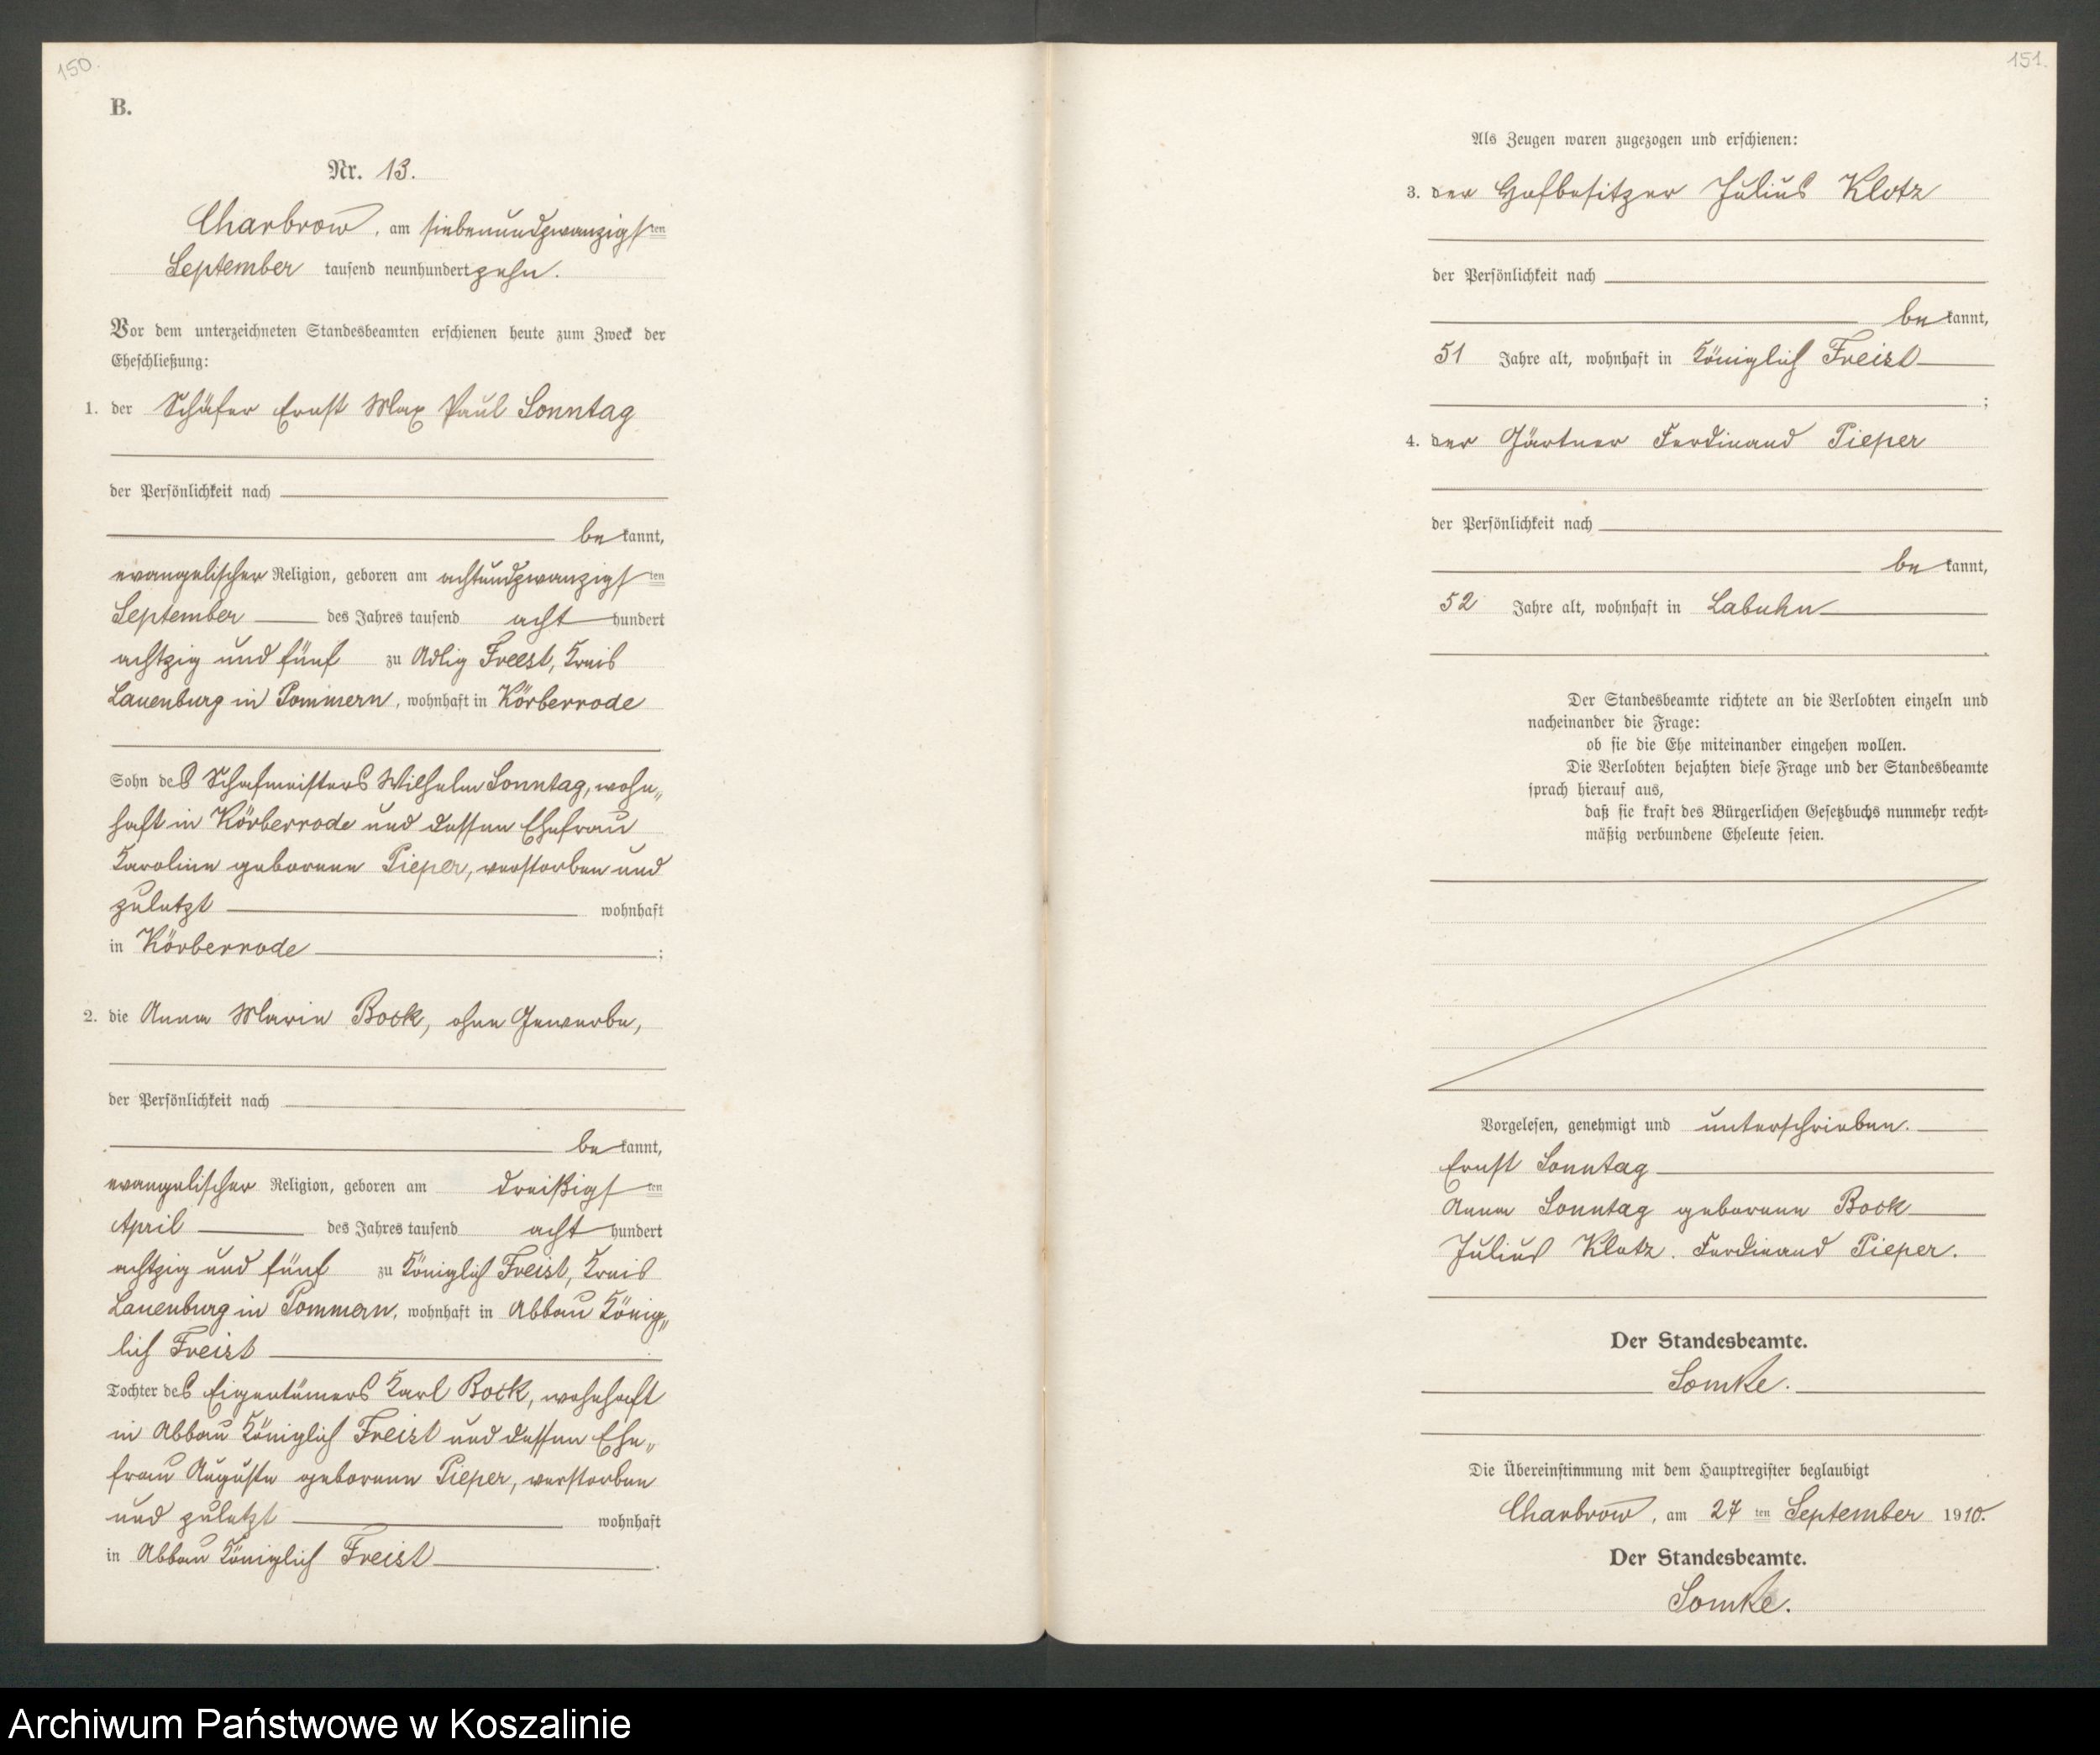 150.
B.
Nr. 13.
Charbrow, am siebenundzwanzigsten
September tausend neunhundert zehn.
Vor dem unterzeichneten Standesbeamten erschienen heute zum Zweck der
Eheschließung:
1. der Schäfer Ernst Max Paul Sonntag
der Persönlichkeit nach
bekannt,
evangelischer Religion, geboren am achtundzwanzigsten
September des Jahres tausend achthundert
achtzig und fünf zu Adlig Freest, Kreis
Lauenburg in Pommern, wohnhaft in Körberrode
Sohn des Schafmeisters Wilhelm Sonntag, wohn„
haft in Körberrode und dessen Ehefrau
Karoline geborene Pieper, verstorben und
zuletzt wohnhaft
in Körberrode ;
2. die Anna Marie Bock, ohne Gewerbe,
der Persönlichkeit nach
bekannt,
evangelischer Religion, geboren am dreißigsten
April des Jahres tausend achthundert
achtzig und fünf zu Königlich Freist, Kreis
Lauenburg in Pommern, wohnhaft in Abbau König„
lich Freist
Tochter des Eigentümers Karl Bock, wohnhaft
in Abbau Königlich Freist und dessen Ehe„
frau Auguste geborene Pieper, verstorben
und zuletzt wohnhaft
in Abbau Königlich Freist .
151.
Als Zeugen waren zugezogen und erschienen:
3. der Hofbesitzer Julius Klotz
der Persönlichkeit nach
bekannt,
51 Jahre alt, wohnhaft in Königlich Freist
;
4. der Gärtner Ferdinand Pieper
der Persönlichkeit nach
bekannt,
52 Jahre alt, wohnhaft in Labuhn
.
Der Standesbeamte richtete an die Verlobten einzeln und
nacheinander die Frage:
ob sie die Ehe miteinander eingehen wollen.
Die Verlobten bejahten diese Frage und der Standesbeamte
sprach hierauf aus,
daß sie kraft des Bürgerlichen Gesetzbuchs nunmehr recht-
mäßig verbundene Eheleute seien.
Vorgelesen, genehmigt und unterschrieben.
Ernst Sonntag
Anna Sonntag geborene Bock
Julius Klotz. Ferdinand Pieper.
Der Standesbeamte.
Somke.
Die Übereinstimmung mit dem Hauptregister beglaubigt
Charbrow, am 27ten September 1910.
Der Standesbeamte.
Somke.
Archiwum Państwowe w Koszalinie